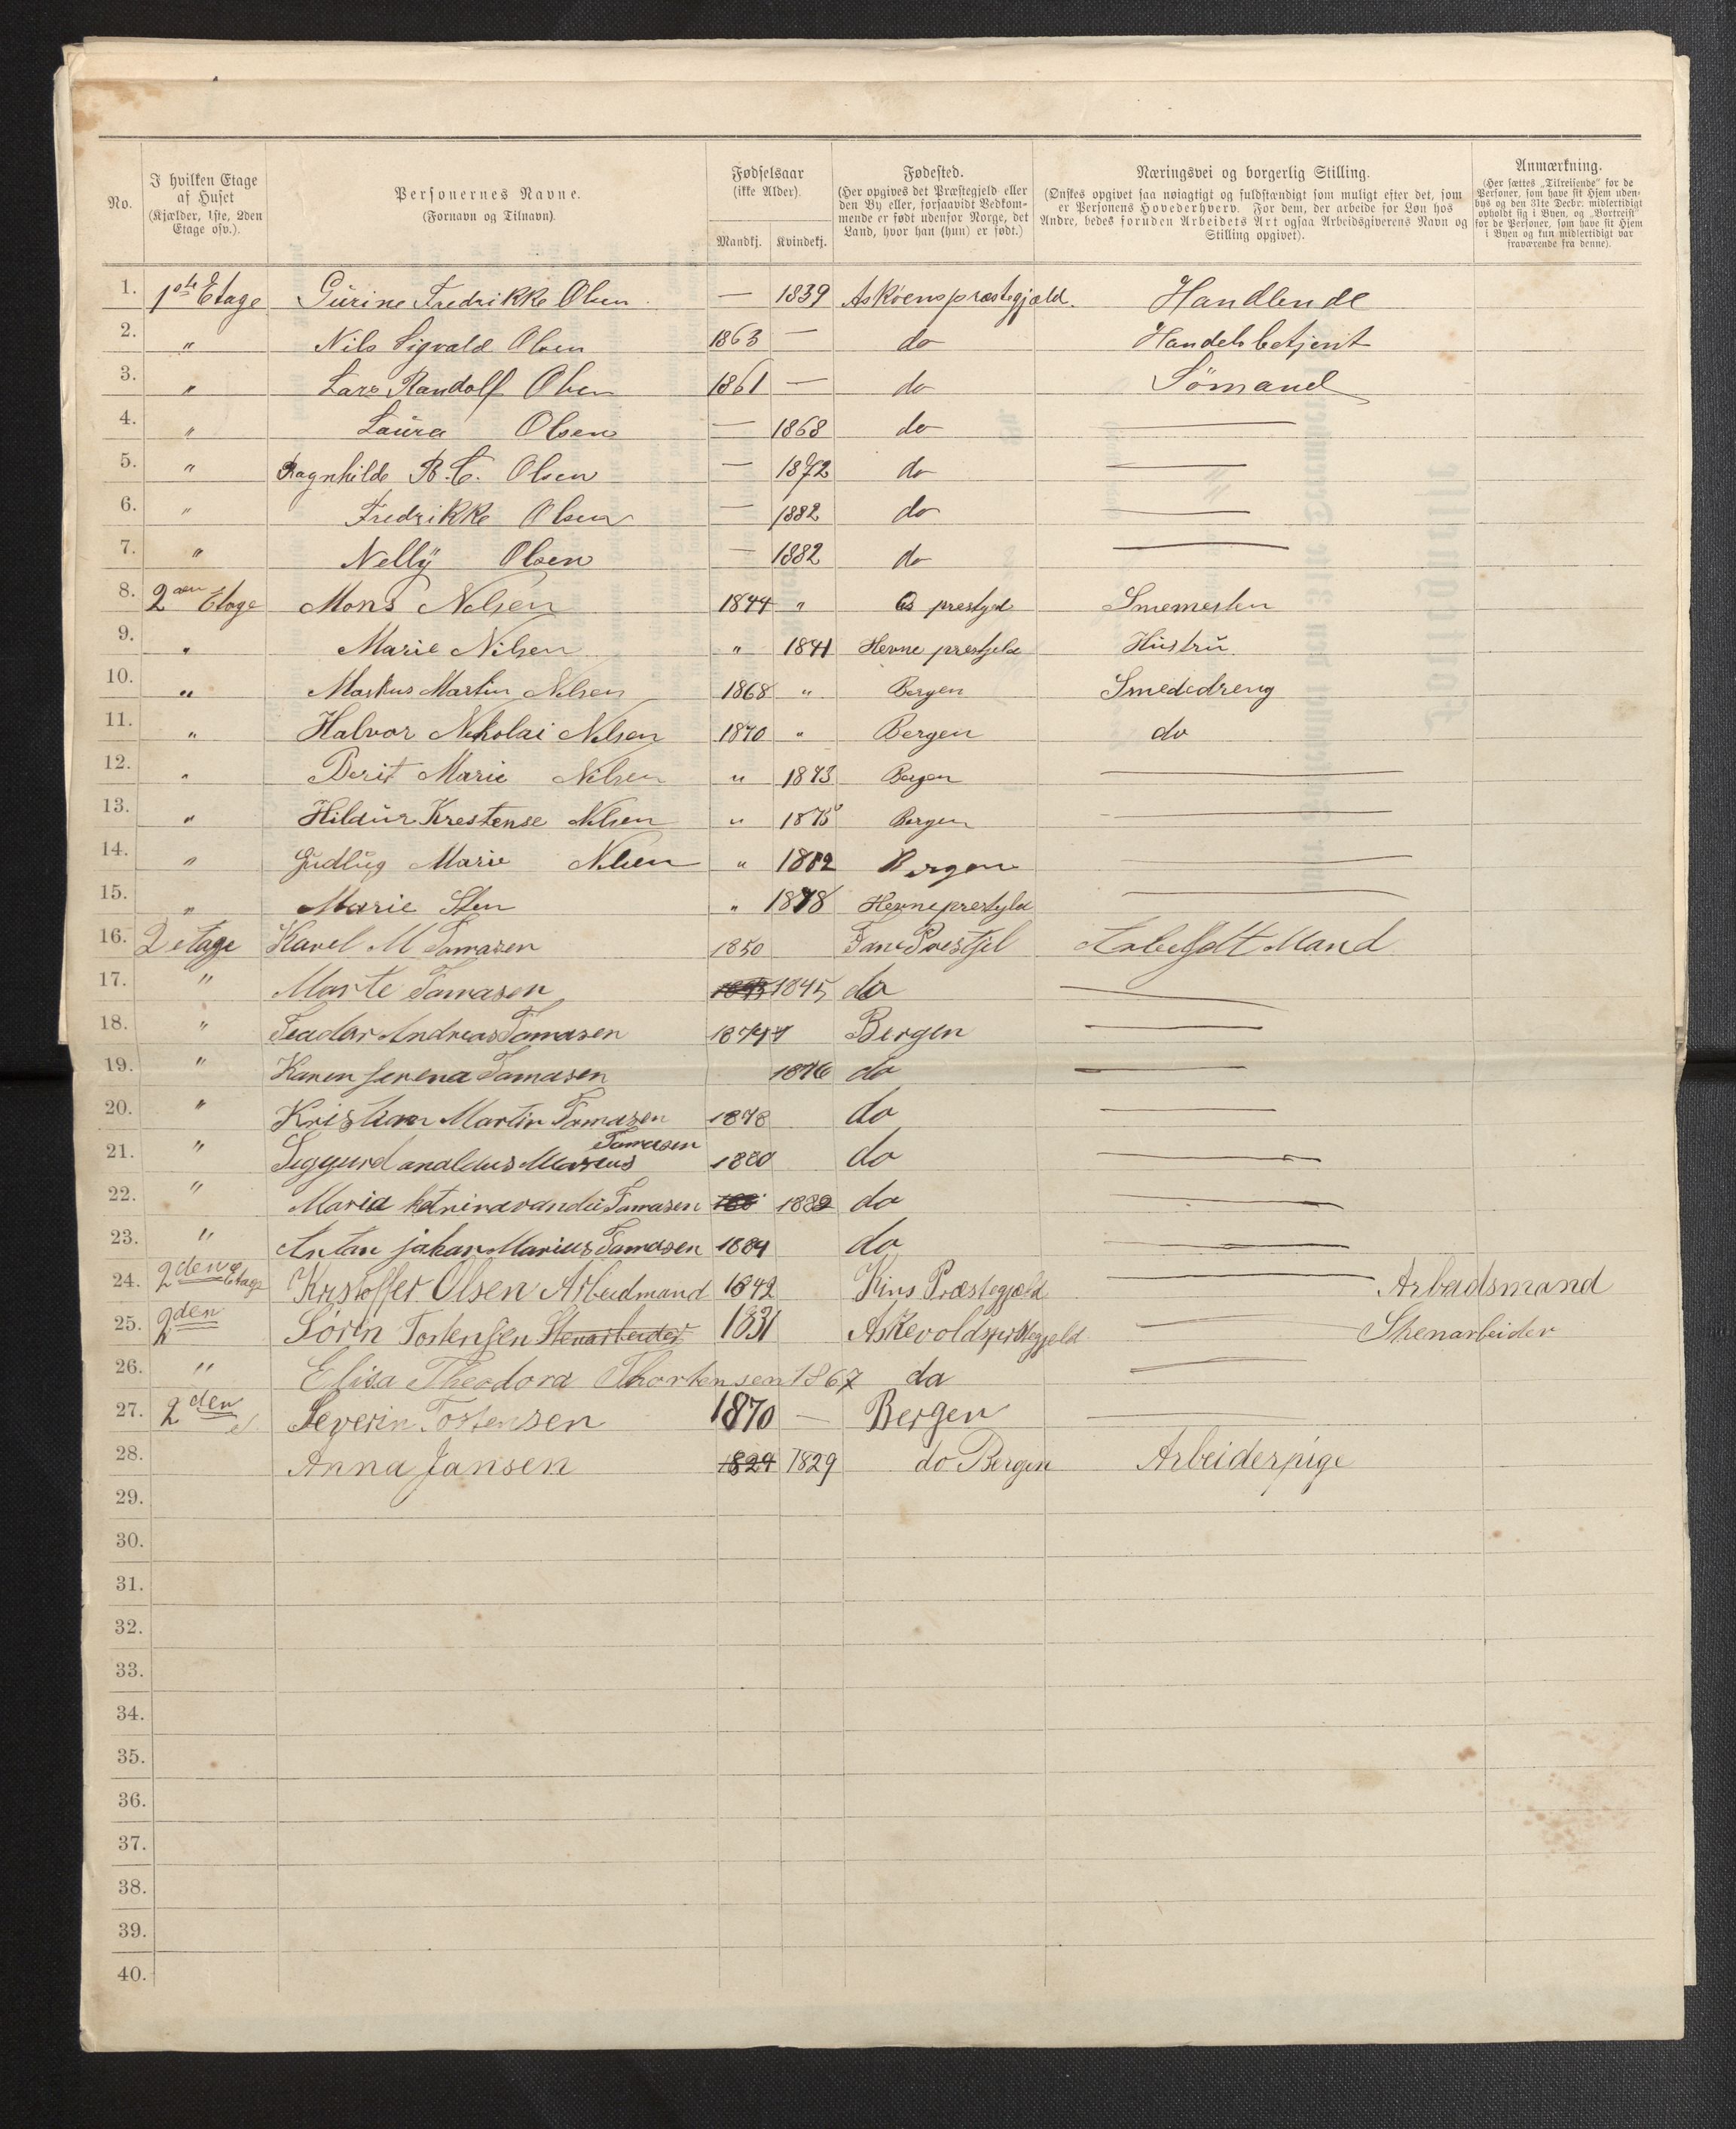 No. I hvilken Etage af Huset (Kjælder, 1ste, 2den Etage osv.). Personernes Navne. (Fornavn og Tilnavn). Fødselsaar (ikke Alder). Mandkj. Kvindekj. Fødested. (Her opgives det Præstegjeld eller den By eller, forsaavidt Bedkommende er født udenfor Norge, det Land, hvor han (hun) er født.) Næringsvei og borgerlig Stilling. (Ønskes opgivet saa nøiagtigt og fuldstændigt som muligt efter det, som er Personens Hovederhverv. For dem, der arbeide for Løn hos Andre, bedes foruden Arbeidets Art ogsaa Arbeidsgiverens Navn og Stilling opgivet). Anmærkning. (Her sættes „Tilreisende" for de Personer, som have sit Hjem udenbys og den 31te Decbr. midlertidigt opholdt sig i Byen, og „Bortreist" for de Personer, som have sit Hjem i Byen og kun midlertidigt var fraværende fra denne).
1. 1ste Etage Gürine Fredrikke Olsen — 1839 Askøens præstegjæld. Handlende
2. " Nils Sigvald Olsen 1863 — do Handelsbetjent
3. " Lars Randolf Olsen 1861 — do Sömand
4. " Laüra Olsen — 1868 do —
5. " Ragnhilde B. C. Olsen — 1872 do —
6. " Fredrikke Olsen — 1882 do —
7. " Nellÿ Olsen — 1882 do —
8. 2den Etage Mons Nelsen 1844 " Os prestgeld Smemesten
9. " Marie Nilsen " 1841 Hevne prestgeld Hüstrü
10. " Markus Martin Nelsen 1868 " Bergen Smededreng
11. " Halvor Nekolai Nelsen 1870 " Bergen do
12. " Berit Marie Nelsen " 1873 Bergen —
13. " Hildür Krestense Nelsen " 1875 Bergen —
14. " Güdlüg Marie Nelsen " 1882 Bergen —
15. " Marie Sten " 1878 Hevne prestgeld —
16. 2 etage Karel M Tamasen 1850 Fane Prestjel Mand
17. " Marte Tamasen 1845 do —
18. " Teador Andreas Tamasen 1874 Bergen —
19. " Karen Serena Tamasen 1876 do —
20. " Kristian Martin Tamasen 1878 do —
21. " Siggurd analdus Mareus Tamasen 1880 do —
22. " Maria katrina vandii Tamasen 1882 do —
23. " Antan johan Marius Tamasen 1884 do —
24. 2den Etage Kristoffer Olsen Arbeidmand 1842 Kins Præstegjæld — Arbadsmand
25. 2den Sörin Tostensen Stenarbeider 1831 Askevolds prestegjeld — Stenarbeider
26. " Elisa Theodora Thortensen 1867 da —
27. 2den Severin Tostensen 1870 — Bergen —
28. Anna Jansen 1829 1829 do Bergen Arbeiderpige
29.
30.
31.
32.
33.
34.
35.
36.
37.
38.
39.
40.